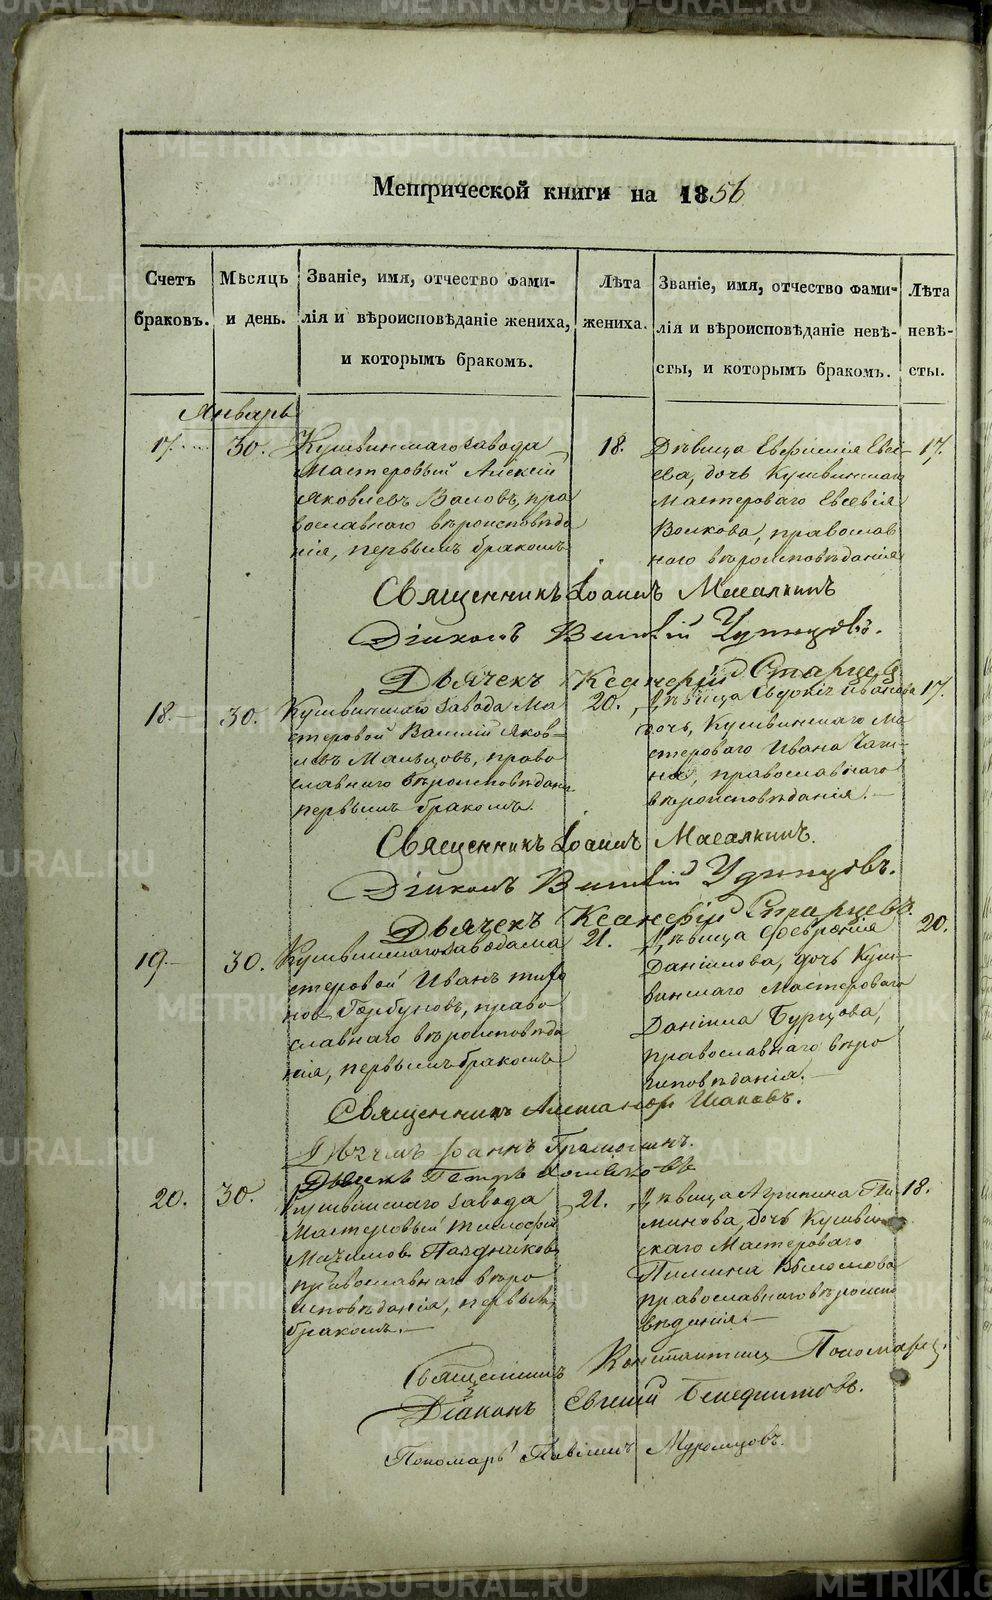 Метрической книги на 1856
Счетъ браковъ.
Мѣсяць и день.
Званіе, имя, отчество фами-
лія и вѣроисповѣданіе жениха,
и которымъ бракомъ.
Лѣта жениха.
Званіе, имя, отчество фами-
лія и вѣроисповѣданіе невѣ-
сты, и которымъ бракомъ.
Лѣта невѣ-
сты.
Январь
17. 30.
Кушвинскаго завода
Мастеровый Алексій
Яковлевъ Валовъ, пра
вославнаго вѣроисповѣда
нія, первымъ бракомъ
18.
Дѣвица Евфимія Евсі-
ева, дочь Кушвинскаго
Мастероваго Евсевія
Волкова, православ
наго вѣроисповѣданія
17.
Священникъ Іоаннъ Масалкинъ
Діаконъ Виталій Удинцовъ.
Дьячекъ Ксанѳфій Старцев
18. 30.
Кушвинскаго завода Ма
стеровой Василій Яков-
левъ Мальцовъ, право
славнаго вѣроисповѣдан.
первымъ бракомъ.
20.
Дѣвица Евдокія Иванова
дочь, Кушвинскаго Ма
стероваго Ивана
православнаго
вѣроисповѣданія.
17.
Священникъ Іоаннъ Масалкинъ.
Діаконъ Виталій Удинцовъ.
Дьячекъ Ксанѳфій Старцевъ.
19. 30.
Кушвинскаго завода ма
стеровой Иванъ Тихо
нов Горбуновъ, право
славнаго вѣроисповѣда
нія, первымъ бракомъ
21.
Дѣвица Февронія
Даніилова, дочь Куш-
винскаго Мастероваго
Даніила Бурцова,
православнаго вѣро
исповѣданія.
20.
Священникъ Александръ Шаповъ.
Дьячекъ Іоаннъ
Дьячекъ Петръ Хомяковъ
20. 30.
Кушвинскаго завода
Мастеровый Тимофей
Максимов Поздняков,
православнаго вѣро
исповѣданія, первымъ
бракомъ.
21.
Дѣвица Агрипина Пи
минова, дочь Кушвин
скаго Мастероваго
Пимина
православнаго вѣроиспо
вѣданія.
18.
Священникъ Константинъ Пономарев.
Діаконъ Евгеній Бенедиктовъ.
Пономарь Павлинъ Муромцовъ.
METRIKI.GASO-URAL.RU